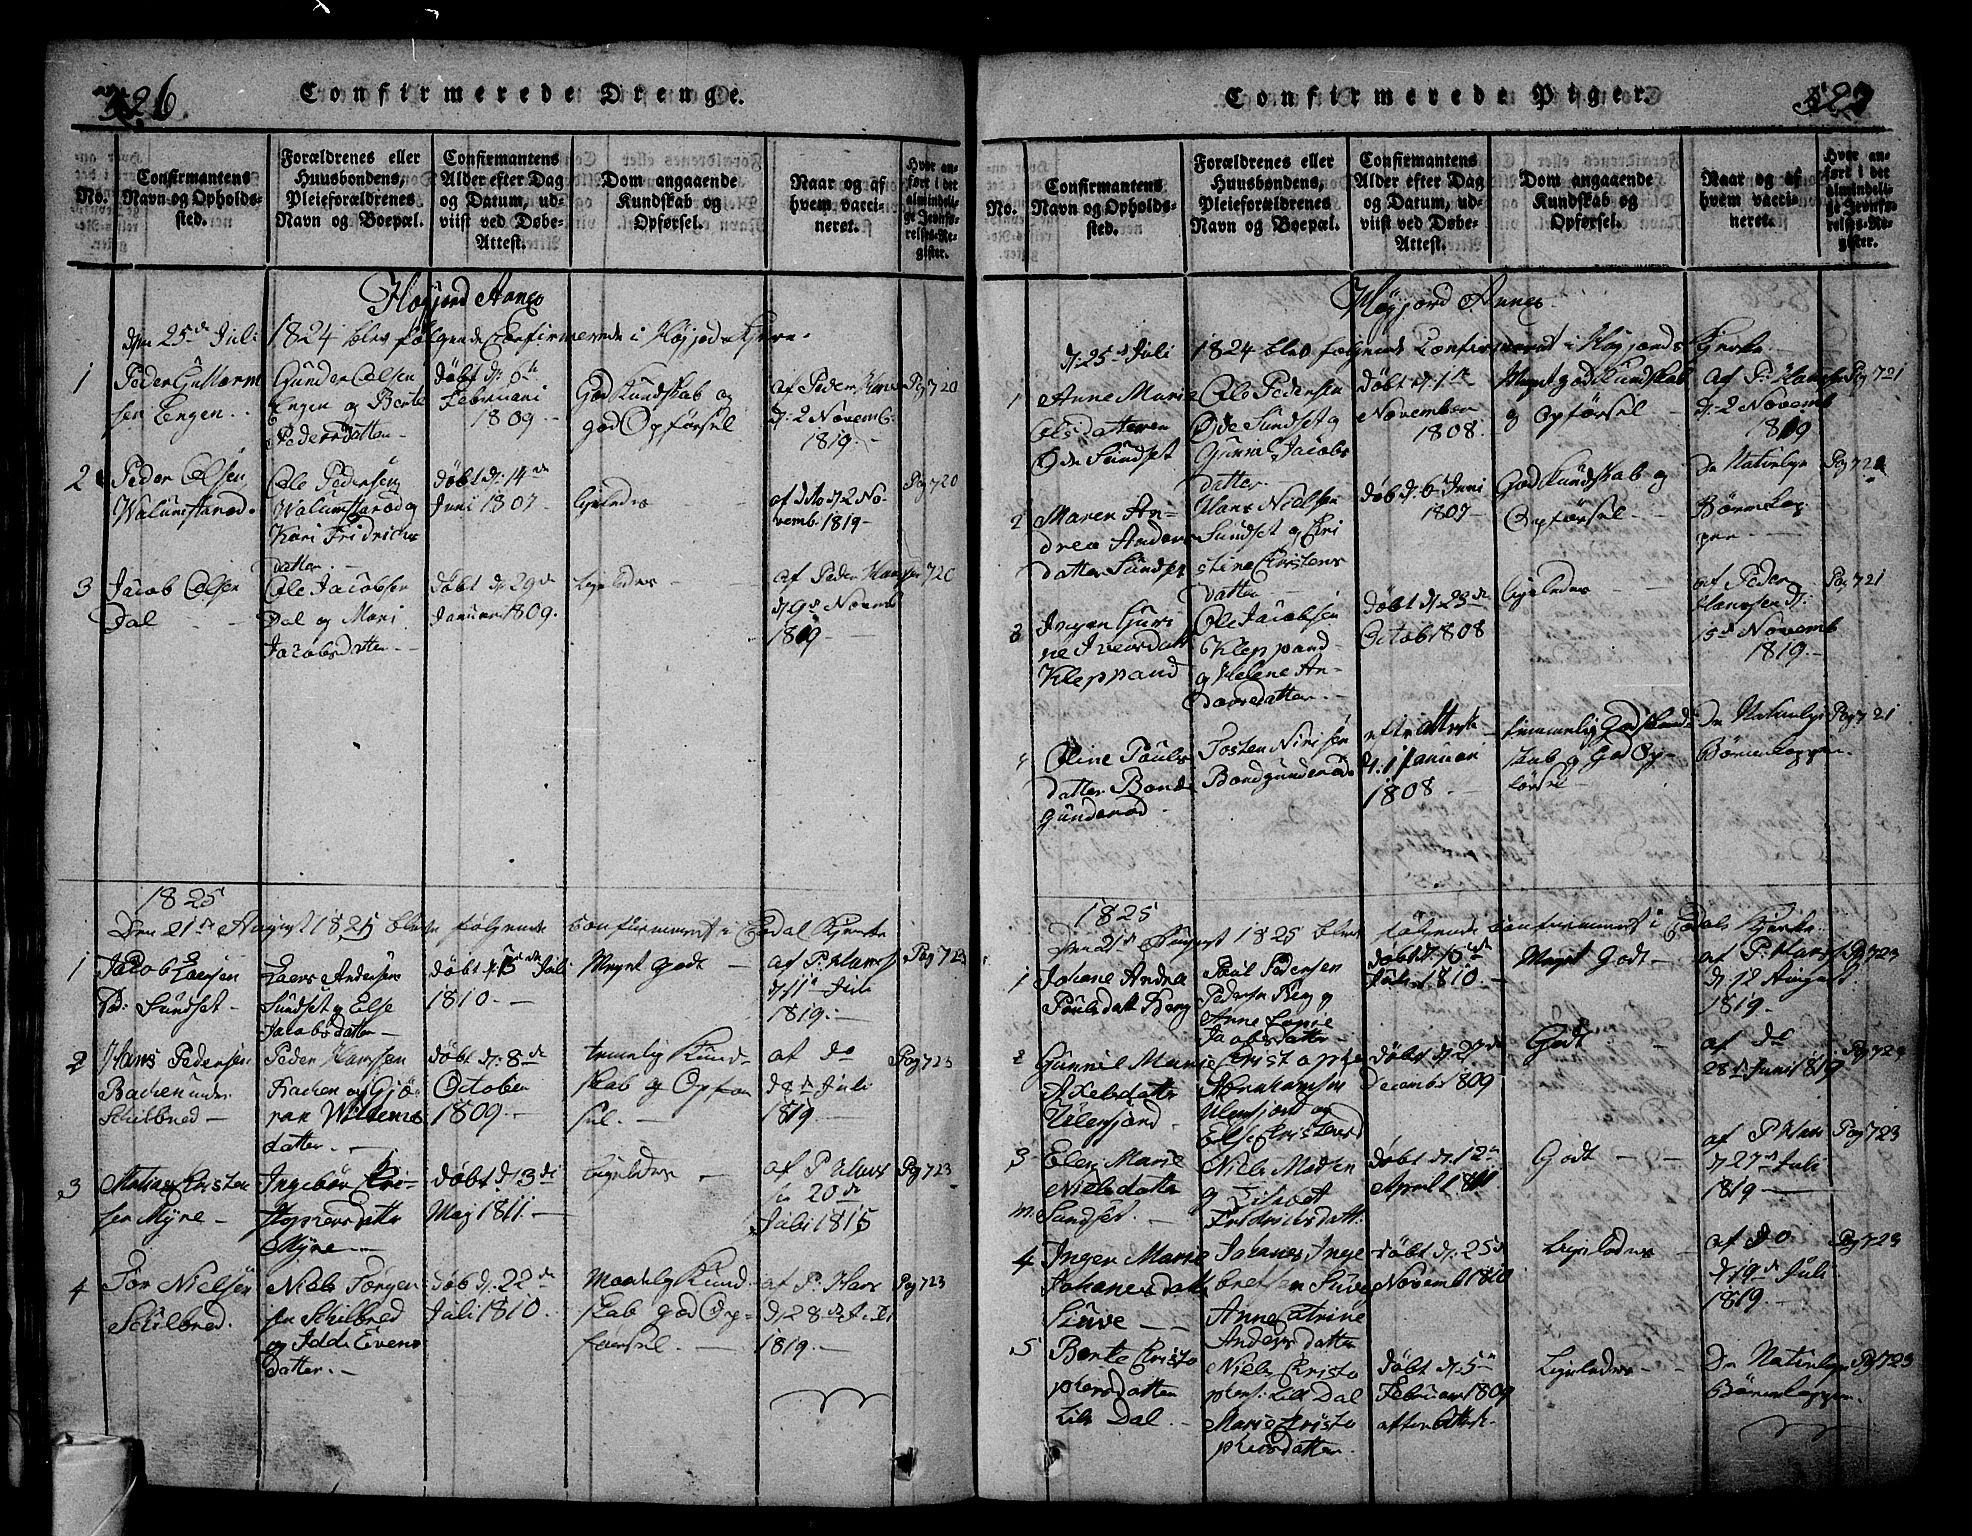 326.
Confirmerede Drenge.
No.
Confirmantens
Navn og Opholds-
sted.
Forældrenes eller
Huusbondens,
Pleieforældrenes
Navn og Boepæl.
Confirmantens
Alder efter Dag
og Datum, ud-
viist ved Døbe-
Attest.
Dom angaaende
Kundskab og
Opførsel.
Naar og af
hvem vacci-
neret.
Hvor an-
ført i det
almindeli-
ge Jevnfø-
relses-Re-
gister.
Høyjord Annex
den 25de Juli 1824 blev følgende Confirmerede i Høyjords Kjerke
1
Peder Guttorm
sen Engen
Gunder Olsen
Engen og Berte
Pedersdatter
døbt d: 6te
Februari
1809
God Kundskab og
god Opførsel
af Peder Hans
d: 2 Novemb
1819
Pag 720
2
Peder Olsen
Walumstarød
Ole Pedersen
Walumstarød og
Kari Fridrichs
datter
døbt d: 14de
Juni 1807
Ligeledes
af dito d 2 No-
vemb 1819
Pag 720
3
Jacob Olsen
Dal
Ole Jacobsen
Dal og Mari
Jacobsdatter
døbt d: 29de
Januar 1809
Ligeledes
af Peder Hanssen
d 9de Novemb
1819
720
1825
Den 21de August 1825 bleve følgende Confirmeret i Kjerke
1
Jacob Larsen
Sundset
Lars Andersen
Sundset og Else
Jacobsdatter
døbt d Juli
1810
Meget Godt
af P: Hans
d 11te Juli
1819
Pag 723
2
Hans Pedersen
Bachen under
Schilbred
Peder Hanssen
Bachen og Gjø-
ran Willums
datter
døbt d: 8de
October
1809
temelig Kund-
skab og Opfør
sel
af do
d 8de Juli
1819
Pag 723
3
Matias Christen
sen Myre
Ingebor Kri-
stophersdatter
Myre
døbt d 3de
Maj 1811
Ligeledes
af P Hans
20de
Juli 1815
Pag 723
4
Tor Nielsen
Schilbred
Niels Torgen
sen Schilbred
og Idde Evens
datter
døb d: 22de
Juli 1810
Maadelig Kund-
skab god Op-
førsel
af P: Hans
d 28de Juli
1819
Pag 723
327
Confirmerede Piger.
No.
Confirmantens
Navn og Opholds-
sted.
Forældrenes eller
Huusbondens,
Pleieforældrenes
Navn og Boepæl.
Confirmantens
Alder efter Dag
og Datum, ud-
viist ved Døbe-
Attest.
Dom angaaende
Kundskab og
Opførsel.
Naar og af
hvem vacci-
neret.
Hvor an-
ført i det
almindeli-
ge Jevnfø-
relses-Re-
gister.
Høyjord Annex
d: 25de Juli 1824 blev følgende Confirmeret i Høyjords Kjerke
1
Anne Marie
Olsdatter
Øde Sundset
Ole Pedersen
Øde Sundset og
Gunnil Jacobs
datter
døbt d: 1te
November
1808
Meget god Kundskab
og Opførsel
af P: Hanssen
d: 2 Novemb
1819
Pag 721
2
Maren An-
drea Anders
datter Sundset
Hans Nielsen
Sundset og Chri
stine Christens
datter
døb d: 6te Juni
1807
God Kundskab og
Opførsel
De Naturlige
Børnekop
per
Pag 721
3
Inger Guri
ne Iversdatt
Kleppand
Ole Jacobsen
Kleppand
og Helene An-
dersdatter
døbt d: 23de
Octob 1808
Ligeledes
af Peder
Hanssen d:
15de Novemb
1819
Pag 721
4
Oline Pouls
datter Bonde
gunderød
Tosten Nirisen
Bondgunderød
efter Atteste
d. 1 Januari
1808
temmelig God Kund
skab og God Op-
førsel
De Naturlige
Børnekopper
Pag 721
1825
Den 21de August 1825 blev følgende Confirmeret i Kjerke
1
Johane Andrea
Poulsdatt Berg
Poul Pedersen
Pedersen Berg og
Anne
Jacobsdatter
døbt d:
Juli 1810
Meget Godt
af P: Hanss
d. 12 August
1819
Pag 723
2
Gunnil Marie
Axelsdatter
Ulensjord
Christophe
Abrahamsen
Ulensjord og
Else Christensd
døbt d. 27de
Decemb 1809
Godt
af do
28de Juni 1819
Pag 723
3
Elen Marie
Nielsdatter
Sundset
Niels Madsen
og
Fridricksdatt
døbt d: 12te
April 1811
Godt
af P Hans
d 27de Juli
1819
Pag 723
4
Inger Marie
Johanesdatt
Stuve
Johanes Inge
bretsen Stuve
Anne Catrine
Andersdatter
døbt d: 25de
Novemb 1810
Ligeledes
af do
d 19de Juli
1819
Pag 723
5
Berte Christo
phersdatter
Lile Dal
Niels Christo
phers: Lile Dal
Marie Christo
phersdatter
døbt d: 5te
Februar 1809
efter Attest
Ligeledes
De Naturlige
Børnekopper
Pag 723